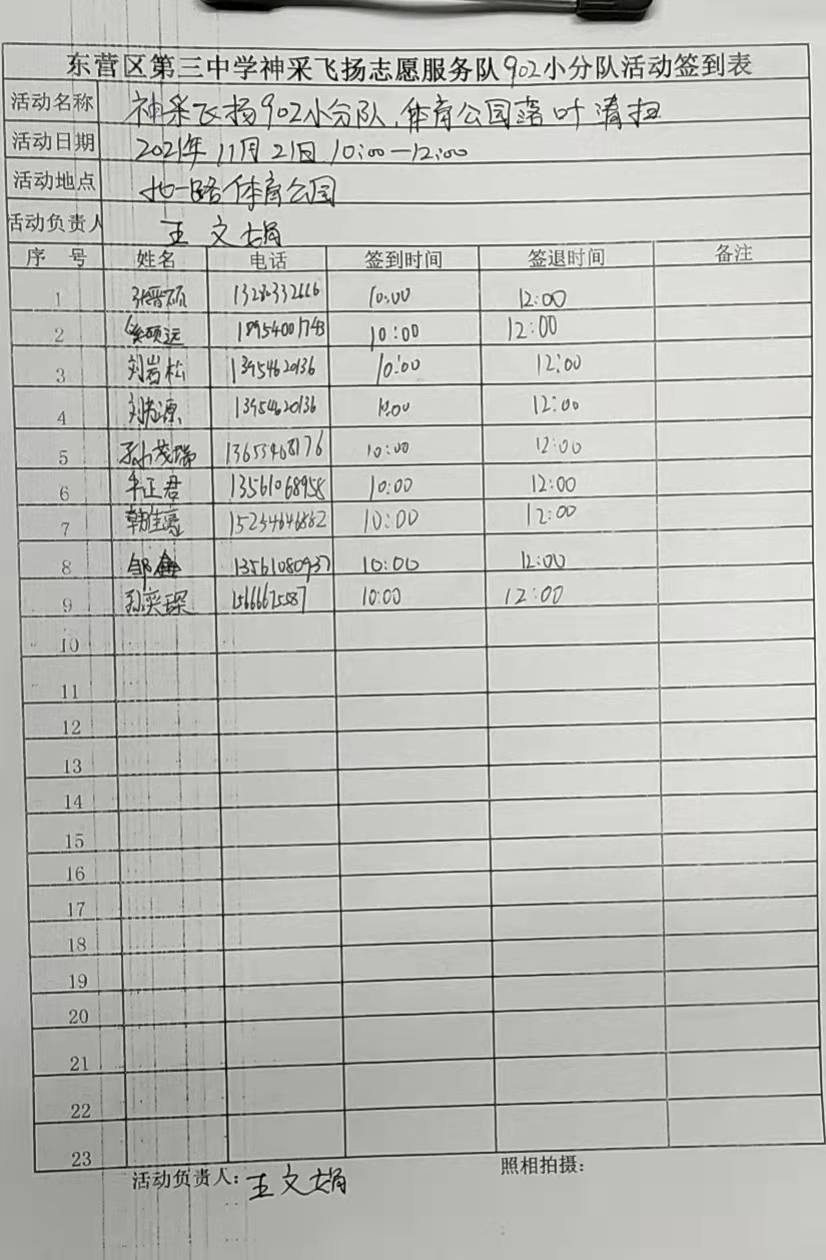 东营区第三中学神采飞扬志愿服务队902小分队活动签到表
活动名称 神采飞扬902小分队,体育公园落叶清扫
活动日期 2021年11月21日 10:00—12:00
活动地点 北一路体育公园
活动负责人 王文娟
序 号 姓名 电话 签到时间 签退时间 备注
1 张晋硕 13280332666 10:00 12:00
2 18954001743 10:00 12:00
3 刘岩松 13954620136 10:00 12:00
4 13954620136 10:00 12:00
5 孙茂瑞 13655468176 10:00 12:00
6 牟正君 13561068958 10:00 12:00
7 韩佳亮 15234646882 10:00 12:00
8 邹鑫 13561080937 10:00 12:00
9 孙奕琛 15666675587 10:00 12:00
10
11
12
13
14
15
16
17
18
19
20
21
22
23
活动负责人:王文娟 照相拍摄: